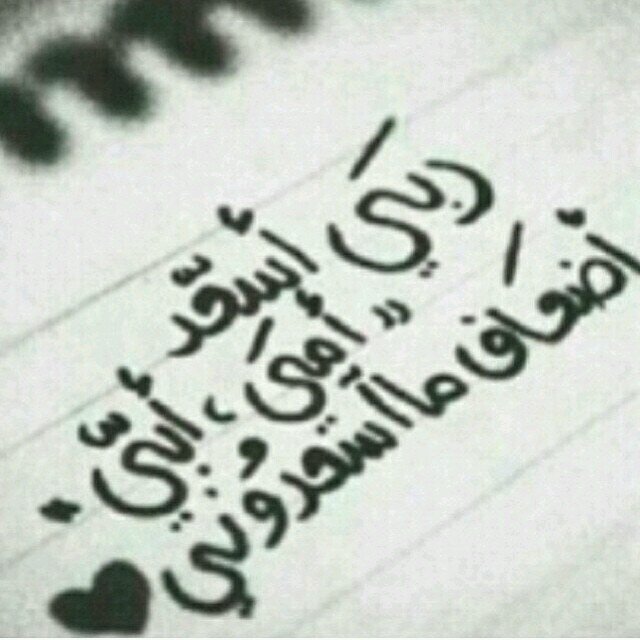 ربَي أسعّد
" أميَ ، أبيّ "
أضعَاف ما أسَعدوُني